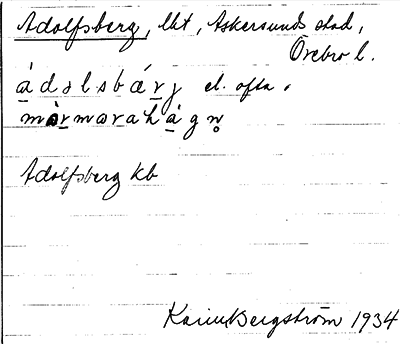 Adolfsberg, lht, Askersunds stad,
Örebro l.
ádɔlsbárj el. ofta
marmarahágn̥
Adolfsberg kb
Karin Bergström 1934